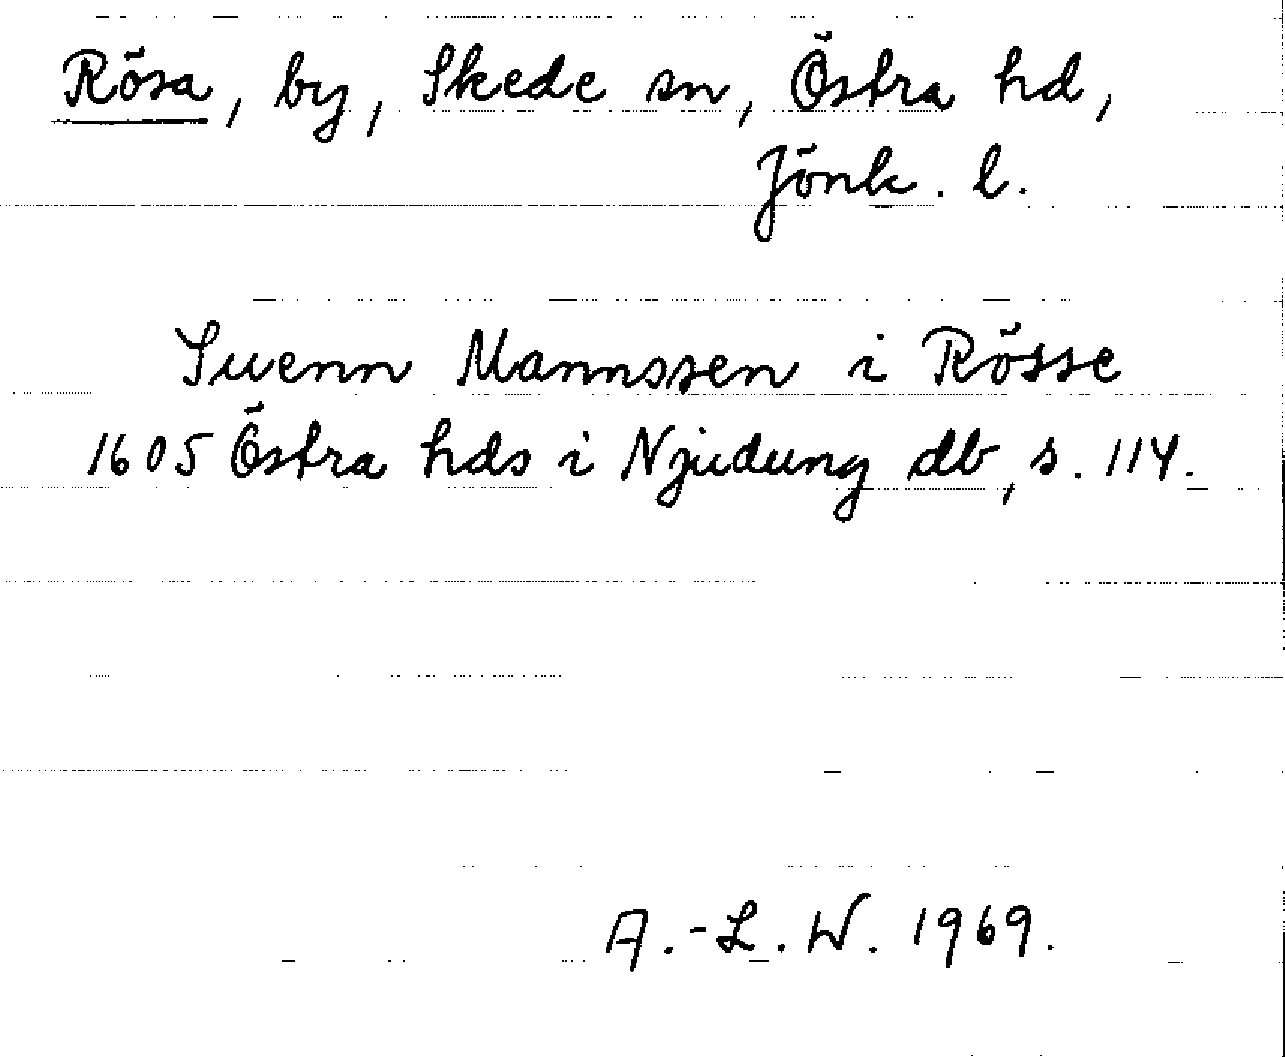 Rösa, by, Skede sn, Östra hd,
Jönk. l.
Suenn Mannssen i Rösse
1605 Östra hds i Njudung db, s. 114.
A.-L. W. 1969.